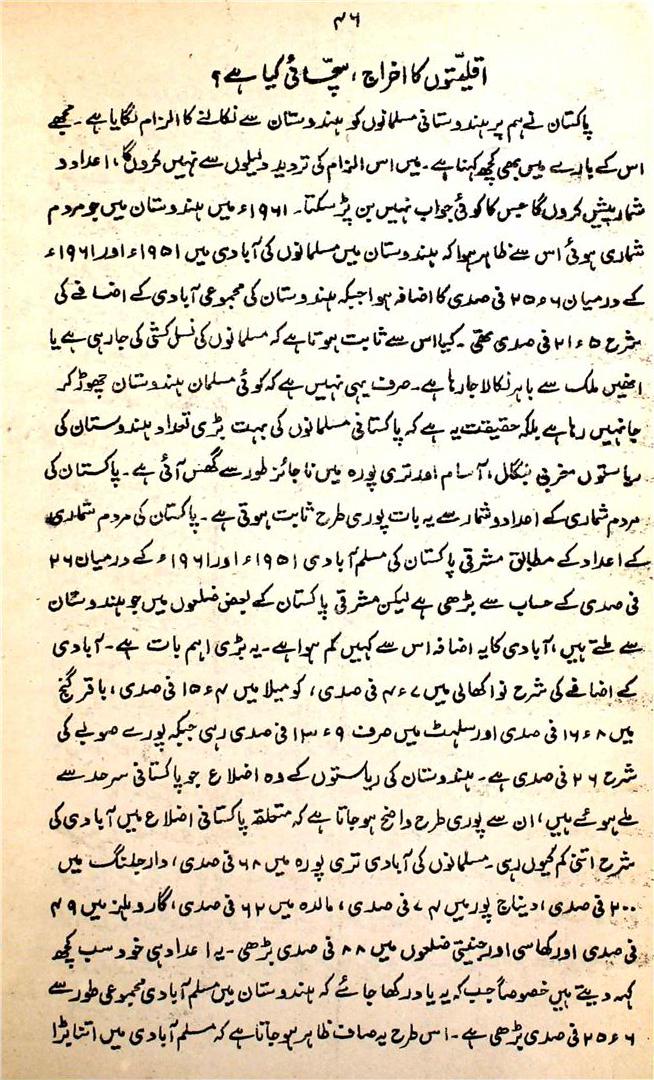 ۴۶
اقلیّتوں کا اخراج، سچّائی کیا ہے؟
پاکستان نے ہم پر ہندوستانی مسلمانوں کو ہندوستان سے نکالنے کا الزام لگایا ہے۔ مجھے
اس کے بارے میں بھی کچھ کہنا ہے۔ میں اس الزام کی تردید دلیلوں سے نہیں کروں گا، اعداد و
شمار پیش کروں گا جس کا کوئی جواب نہیں بن پڑ سکتا۔ ۱۹۶۱ء میں ہندوستان میں جو مردم
شماری ہوئی اس سے ظاہر ہوا کہ ہندوستان میں مسلمانوں کی آبادی میں ۱۹۵۱ء اور ۱۹۶۱ء
کے درمیان ۲۵ء۶ فی صدی کا اضافہ ہوا جبکہ ہندوستان کی مجموعی آبادی کے اضافے کی
شرح ۲۱ء۵ فی صدی تھی۔ کیا اس سے ثابت ہوتا ہے کہ مسلمانوں کی نسل کشی کی جا رہی ہے یا
انھیں ملک سے باہر نکالا جا رہا ہے۔ صرف یہی نہیں ہے کہ کوئی مسلمان ہندوستان چھوڑ کر
جا نہیں رہا ہے بلکہ حقیقت یہ ہے کہ پاکستانی مسلمانوں کی بہت بڑی تعداد ہندوستان کی
ریاستوں مغربی بنگال، آسام اور تری پورہ میں ناجائز طور سے گھس آئی ہے۔ پاکستان کی
مردم شماری کے اعداد و شمار سے یہ بات پوری طرح ثابت ہوتی ہے۔ پاکستان کی مردم شماری
کے اعداد کے مطابق مشرقی پاکستان کی مسلم آبادی ۱۹۵۱ء اور ۱۹۶۱ء کے درمیان ۲۶
فی صدی کے حساب سے بڑھی ہے لیکن مشرقی پاکستان کے بعض ضلعوں میں جو ہندوستان
سے ملتے ہیں، آبادی کا یہ اضافہ اس سے کہیں کم ہوا ہے۔ یہ بڑی اہم بات ہے۔ آبادی
کے اضافے کی شرح نواکھالی میں ۴ء۷ فی صدی، کومیلا میں ۱۵ء۴ فی صدی، باقر گنج
میں ۱۶ء۸ فی صدی اور سلہٹ میں صرف ۱۳ء۹ فی صدی رہی جبکہ پورے صوبے کی
شرح ۲۶ فی صدی ہے۔ ہندوستان کی ریاستوں کے وہ اضلاع جو پاکستانی سرحد سے
ملے ہوئے ہیں، ان سے پوری طرح واضح ہو جاتا ہے کہ متعلقہ پاکستانی اضلاع میں آبادی کی
شرح اتنی کم کیوں رہی۔ مسلمانوں کی آبادی تری پورہ میں ۶۸ فی صدی، دارجلنگ میں
۲۰۰ فی صدی، دیناج پور میں ۴۷ فی صدی، مالدہ میں ۶۲ فی صدی، گارو ہلز میں ۴۹
فی صدی اور کھاسی اور جنیتی ضلعوں میں ۸۸ فی صدی بڑھی۔ یہ اعداد ہی خود سب کچھ
کہہ دیتے ہیں خصوصاً جب کہ یہ یاد رکھا جائے کہ ہندوستان میں مسلم آبادی مجموعی طور سے
۲۵ء۶ فی صدی بڑھی ہے۔ اس طرح یہ صاف ظاہر ہو جاتا ہے کہ مسلم آبادی میں اتنا بڑا